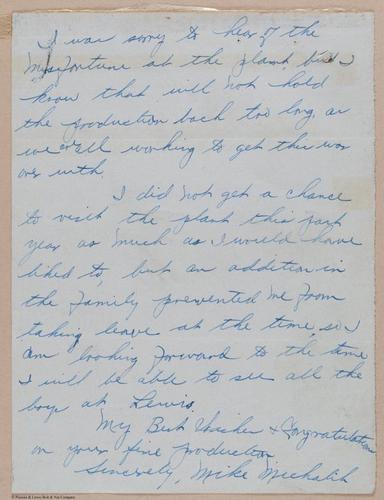 I was sorry to hear of the
Missfortune at the plant but I
know that will not hold
the production back too long, as
we are all working to get this war
over with.
I did not get a chance
to visit the plant this past
year as much as I would have
liked to, but an addition in
the Family prevented me from
taking leave at the time, so I
am looking forward to the time
I will be able to see all the
boys at Lewis.
My Best Wishes & Congratulations
on your fine production
Sincerely, Mike Michalik
© Lewis Bolt & Nut Company